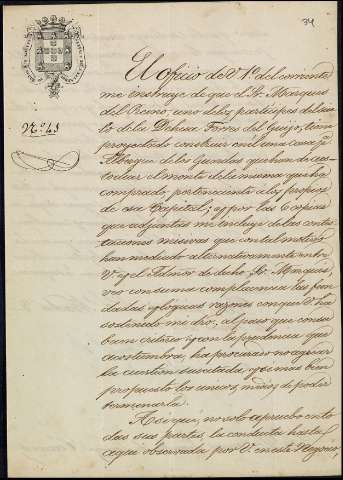 34
N.º 43
El oficio de V. 1.º del corriente
me instruye de que el Sr. Marques
del Reino, uno de los participes del
to de la Dehesa Torres del Guijo, tiene
proyectado construir en él una casa pª
Albergue de los Guardas que han de cus-
todiar el monte de la misma que ha
comprado, perteneciente a los propios
de esa Capital; y por las 6 copias
que adjuntas me incluye de las contes-
taciones misivas que con tal motivo
han mediado alternativamente entre
V. y el Admor de dicho Sr. Marques,
veo con suma complacencia las fun-
dadas y lógicas razones con que V. ha
sostenido mi dro, al paso que con su
buen criterio y con la prudencia que
acostumbra, ha procurado no agriar
la cuestion suscitada, y si mas bien
propuesto los unicos medios de poder
terminarla.
Asi que, no solo apruebo en to-
das sus partes, la conducta hasta
aqui observada por V. en este Negocio,